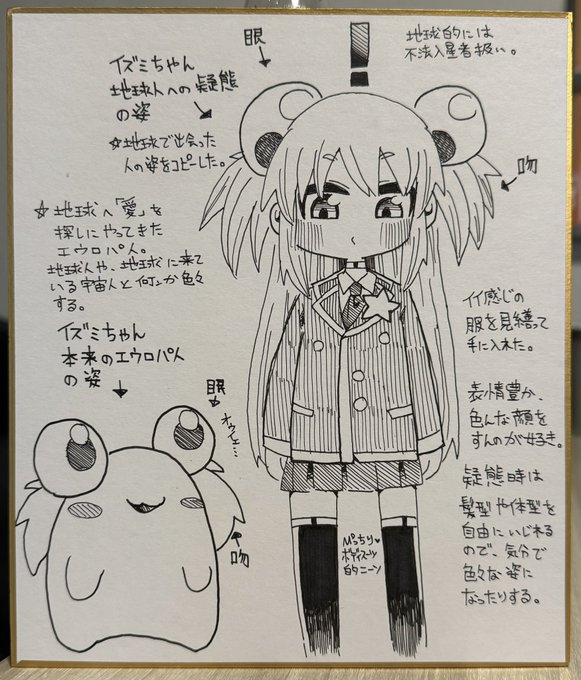 眼
!
地球的には
不法入星者扱い。
イズミちゃん
地球人への疑態
の姿
☆地球で出会った
人の姿をコピーした。
吻
☆地球へ「愛」を
探しにやってきた
エウロパ人。
地球人や、地球に来て
いる宇宙人と何ンか色々
する。
イイ感じの
服を見繕って
手に入れた。
イズミちゃん
本来のエウロパ人
の姿
眼
オウイェ…
吻
表情豊か、
色んな顔を
すんのが好き。
疑態時は
髪型や体型を
自由にいじれる
ので、気分で
色々な姿に
なったりする。
ぴっちり♥
ボディスーツ
白タニーソ